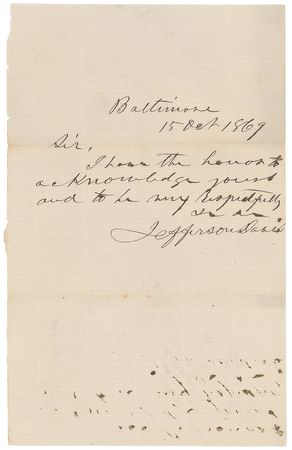 Baltimore
15 Oct 1869
Sir,
I have the honor to
acknowledge yours
and to be very respectfully
Jefferson Davis